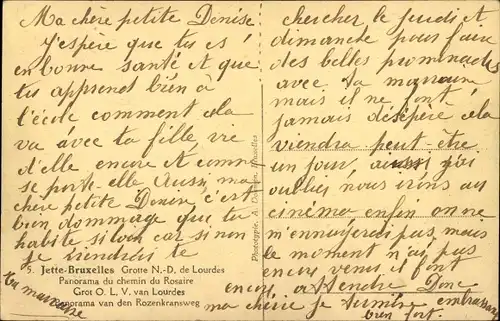 Ma chère petite Denise
J'espère que tu es
en bonne santé et que
tu apprend bien à
l'école comment cela
va avec ta fille,
d'elle encore et comme
se porte-elle Aussi, ma
chère petite Denise c'est
bien dommage que tu
habite si loin car si non
je viendrais te
5. Jette-Bruxelles Grotte N.-D. de Lourdes
Panorama du chemin du Rosaire
Grot O. L. V. van Lourdes
Panorama van den Rozenkransweg
Ta marraine
Phototypie, A. Bruxelles
chercher le jeudi et
dimanche pour faire
des belles promenades
avec ta marraine
mais il ne font
jamais désespéré cela
viendra peut-être
un jour, aussi j'ai
oublier nous irons au
cinéma enfin on ne
m'ennuyerai pas mais
le moment n'ai pas
encore venus il font
encore attendre Donc
ma chérie je termine embrasse
bien fort.